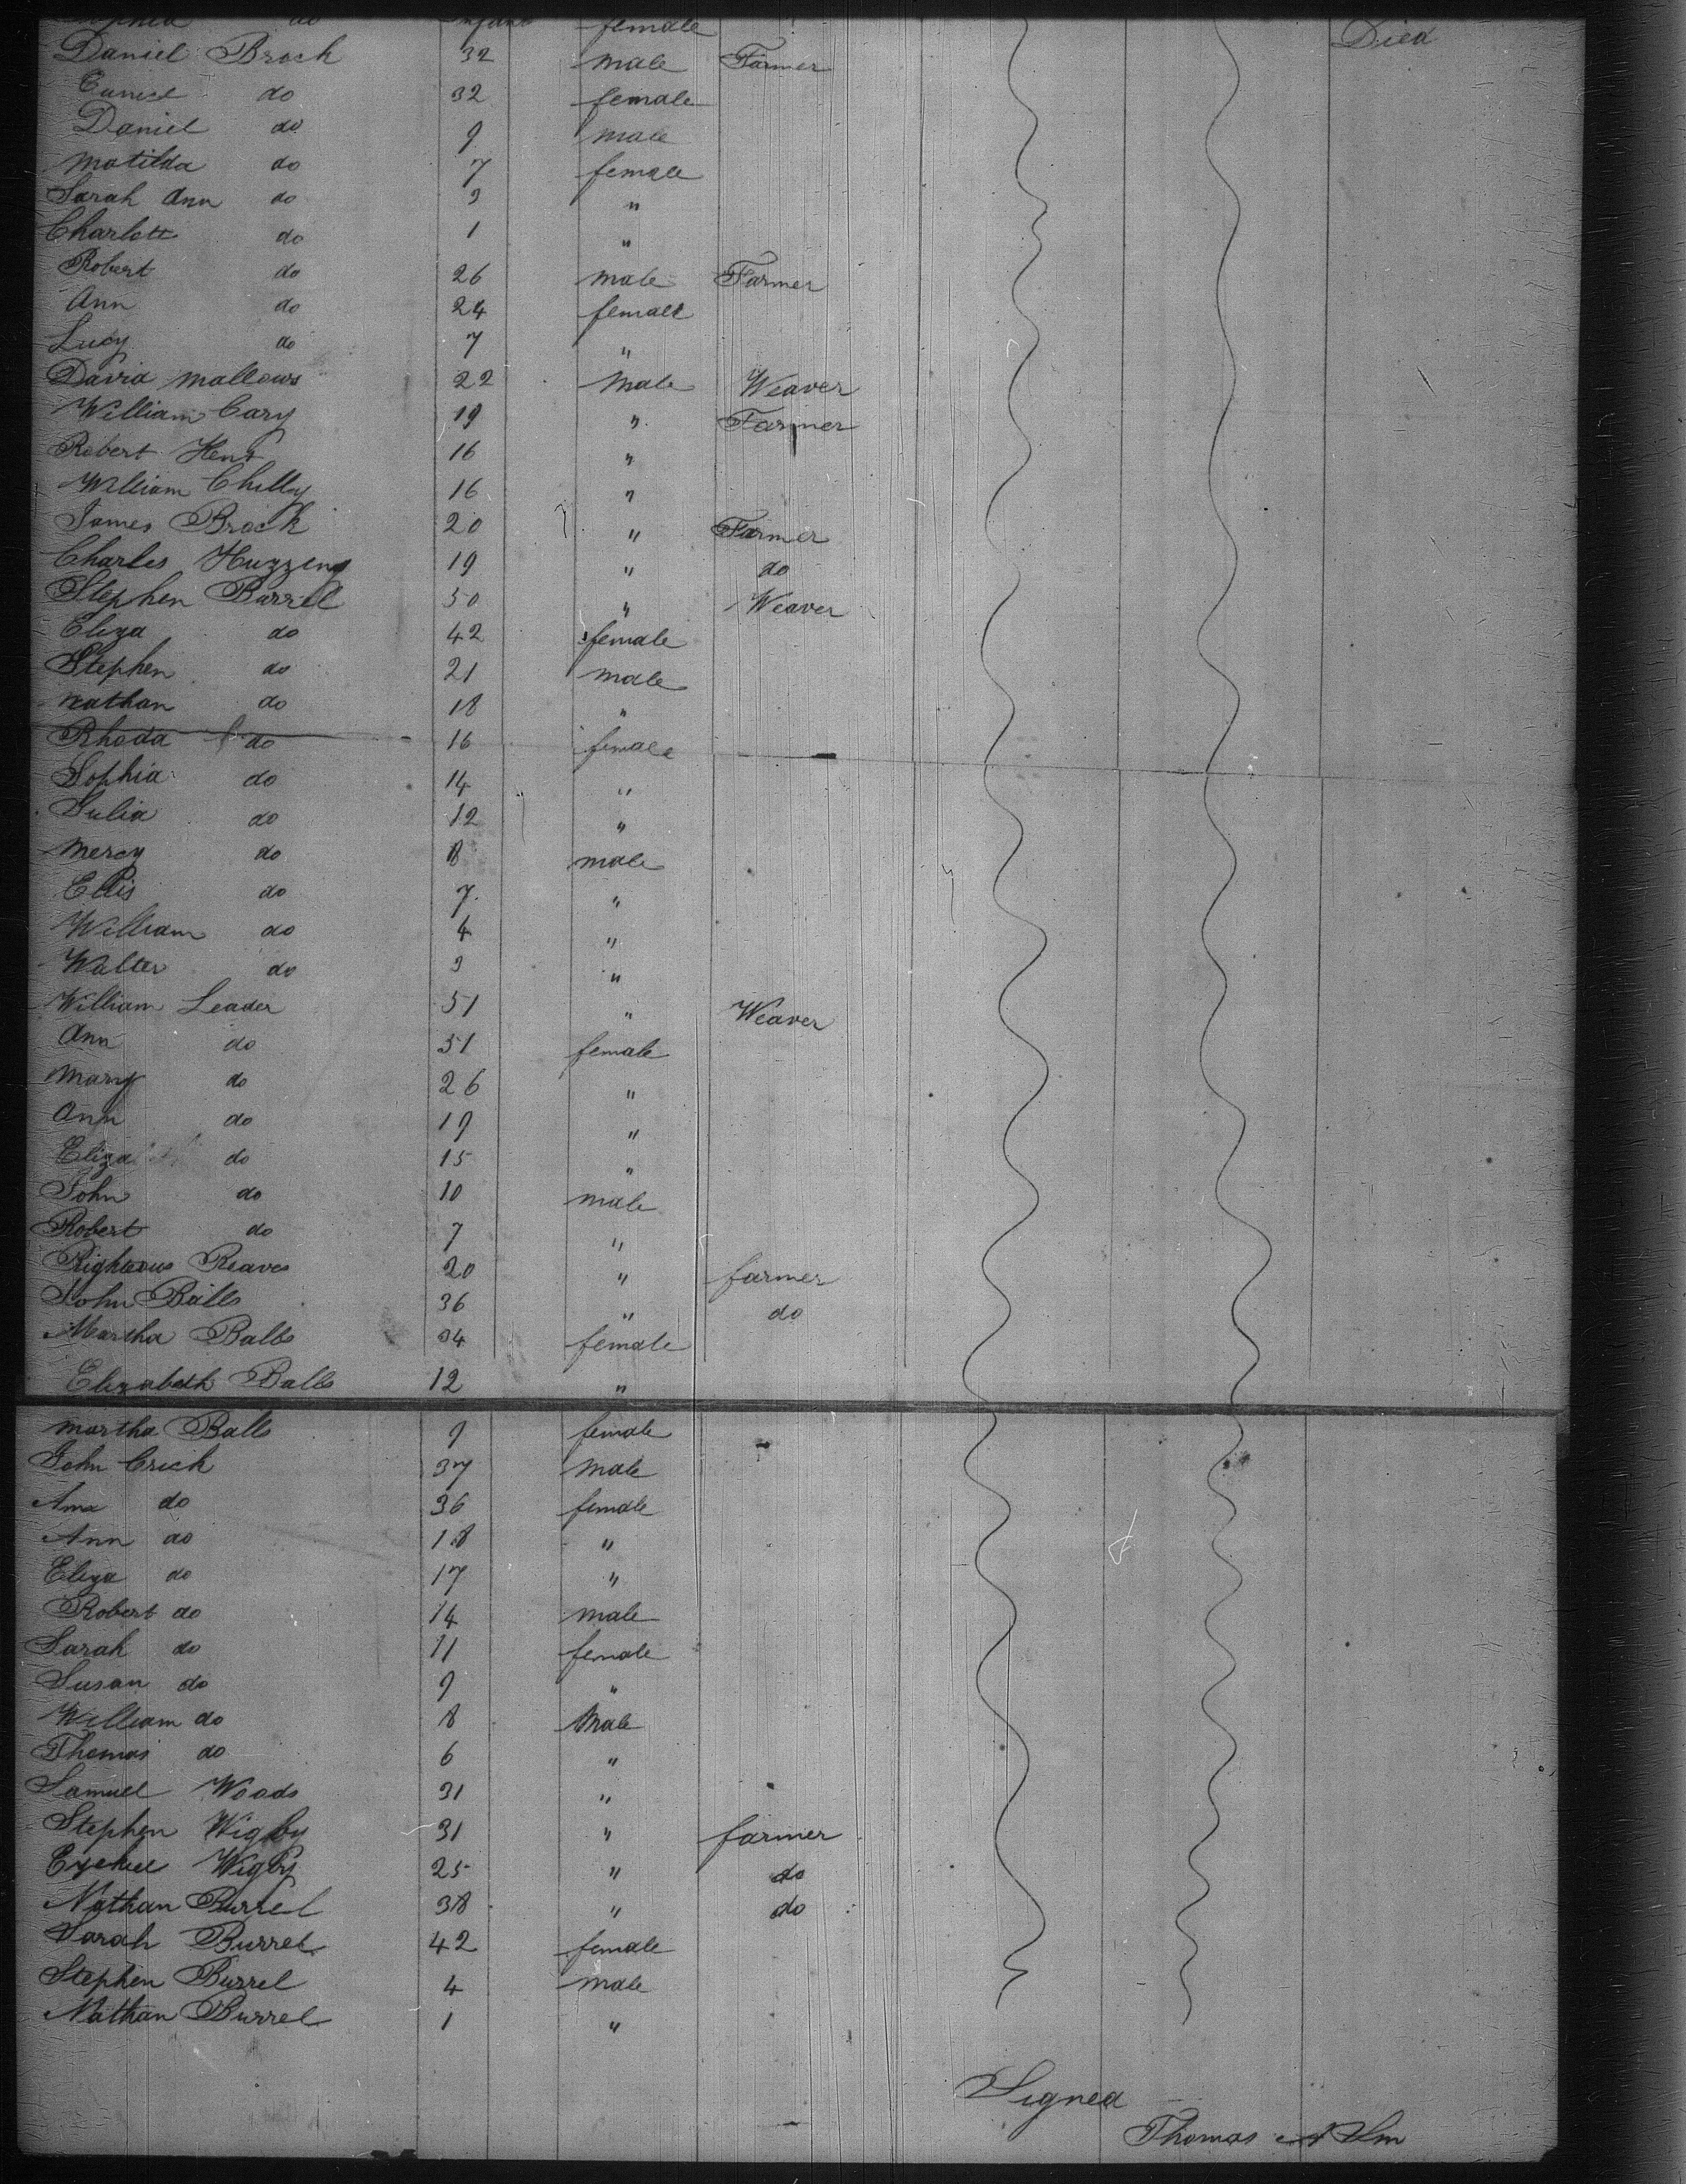 Sophia do Infant female Died
Daniel Brock 32 male Farmer
Eunice do 32 female
Daniel do 9 male
Matilda do 7 female
Sarah Ann do 3 "
Charlott do 1 "
Robert do 26 male Farmer
Ann do 24 female
Lucy do 7 "
David Mallows 22 Male Weaver
William Cary 19 " Farmer
Robert 16 "
William Chilly 16 "
James Brock 20 " Farmer
Charles 19 " do
Stephen Burrel 50 " Weaver
Eliza do 42 female
Stephen do 21 male
Nathan do 18 "
Rhoda do 16 female
Sophia do 14 "
Julia do 12 "
Mercy do 8 male
Ellis do 7 "
William do 4 "
Walter do 3 "
William Leader 51 " Weaver
Ann do 51 female
Mary do 26 "
Ann do 19 "
Eliza do 15 "
John do 10 male
Robert do 7 "
Righteous Reaves 20 " farmer
John Balls 36 " do
Martha Balls 34 female
Elizabeth Balls 12 "
Martha Balls 9 female
John Crick 37 Male
do 36 female
Ann do 18 "
Eliza do 17 "
Robert do 14 male
Sarah do 11 female
Susan do 9 "
William do 8 Male
Thomas do 6 "
Samuel Woods 31 "
Stephen Wigby 31 " farmer
Ezekiel Wigby 25 " do
Nathan Burrel 38 " do
Sarah Burrel 42 female
Stephen Burrel 4 male
Nathan Burrel 1 "
Signed
Thomas